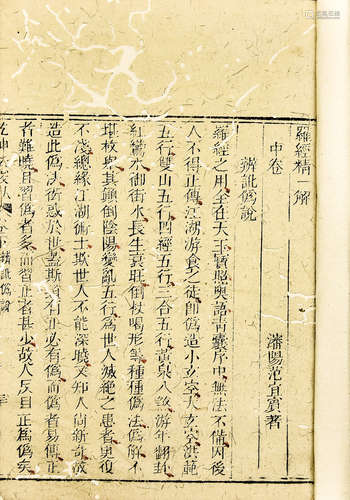 羅經精解
中卷
瀋陽范宜賓著
辨訛偽說
羅經之用全在天玉寶照奧語青囊序中無法不備因後
人不得正傳江湖游食之徒師偽造小玄空大玄空洪範
五行雙山五行四經五行三合五行黃泉八煞游年翻卦
紅鸞水御街水長生衰旺倒杖喝形等種種偽法偽解不
堪枚舉其顛倒陰陽變亂五行為世人滅絕之患者更復
不淺總緣江湖術士欺世人不能深曉又知人尚新奇故
造此偽法傍惑於世蓋斯道有正必有偽而偽者易傳正
者難曉且習偽者多而習正者甚少故人反目正為偽矣